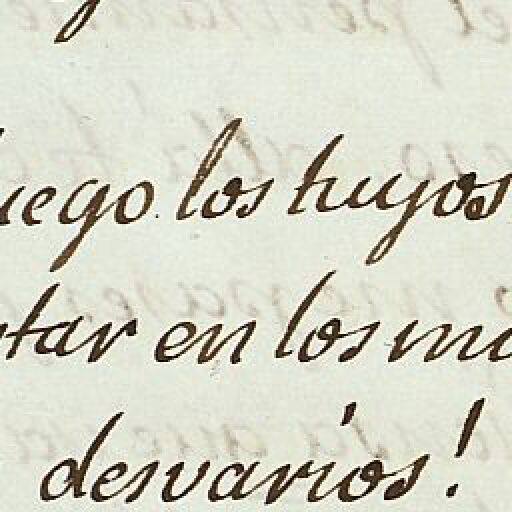 uego los tuyos
tar en los
desvaríos!